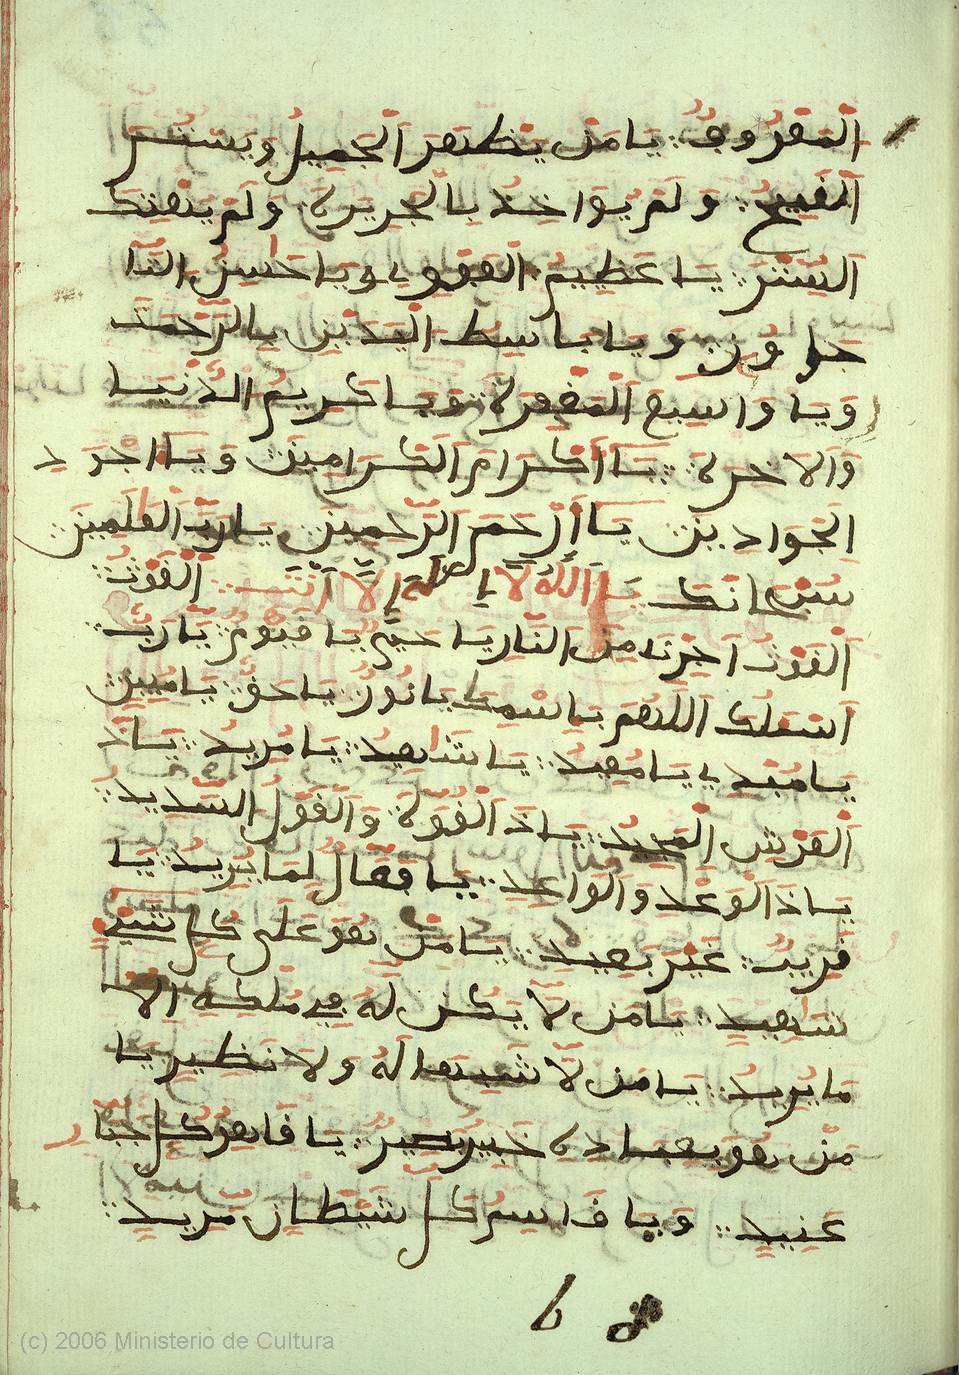 المعروف يا من يظهر الجميل ويستر
القبيح ولم يواخذ بالجريرة ولم يهتك
الستر يا عظيم العفو ويا حسن التا
جاوزن ويا باسط اليدين بالرحمة
ويا واسع المغفرة ويا كريم الدنيا
والاخرة يا أكرام الكرامين ويا اجود
الجوادين يا أرحم الرحمين يا رب العلمين
سبحانك يا الله لا إله إلا أنت الغوث
الغوث اجرنا من النار يا حي يا قيوم يا رب
اسئلك اللهم باسمك يا نور يا حق يا مبين
يا مبدي يا معيد يا شهيد يا مريد يا ذ
العرش المجيد يا ذ القوة والقول السديد
يا ذ الوعد والواعد يا فعال لما يريد يا
قريب غير بعيد يا من هو على كل شيء
شهيد يا من لا يكن له في ملكه الا
ما يريد يا من لا شبيها له ولا نظير يا
من هو بعباده خبير بصير يا قاهر كل جبا
ر
عنيد ويا قاسم كل شيطان مريد
(c) 2006 Ministerio de Cultura